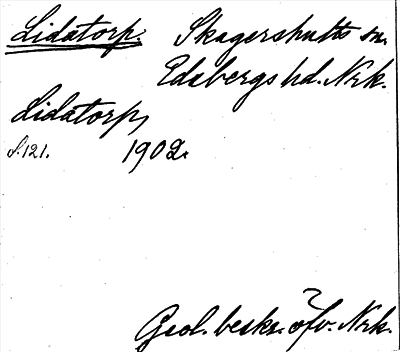 Lidatorp. Skagershults sn.
Edsbergs hd. Nrk.
Lidatorp,
s. 121. 1902.
Geol. beskr. öfv. Nrk.